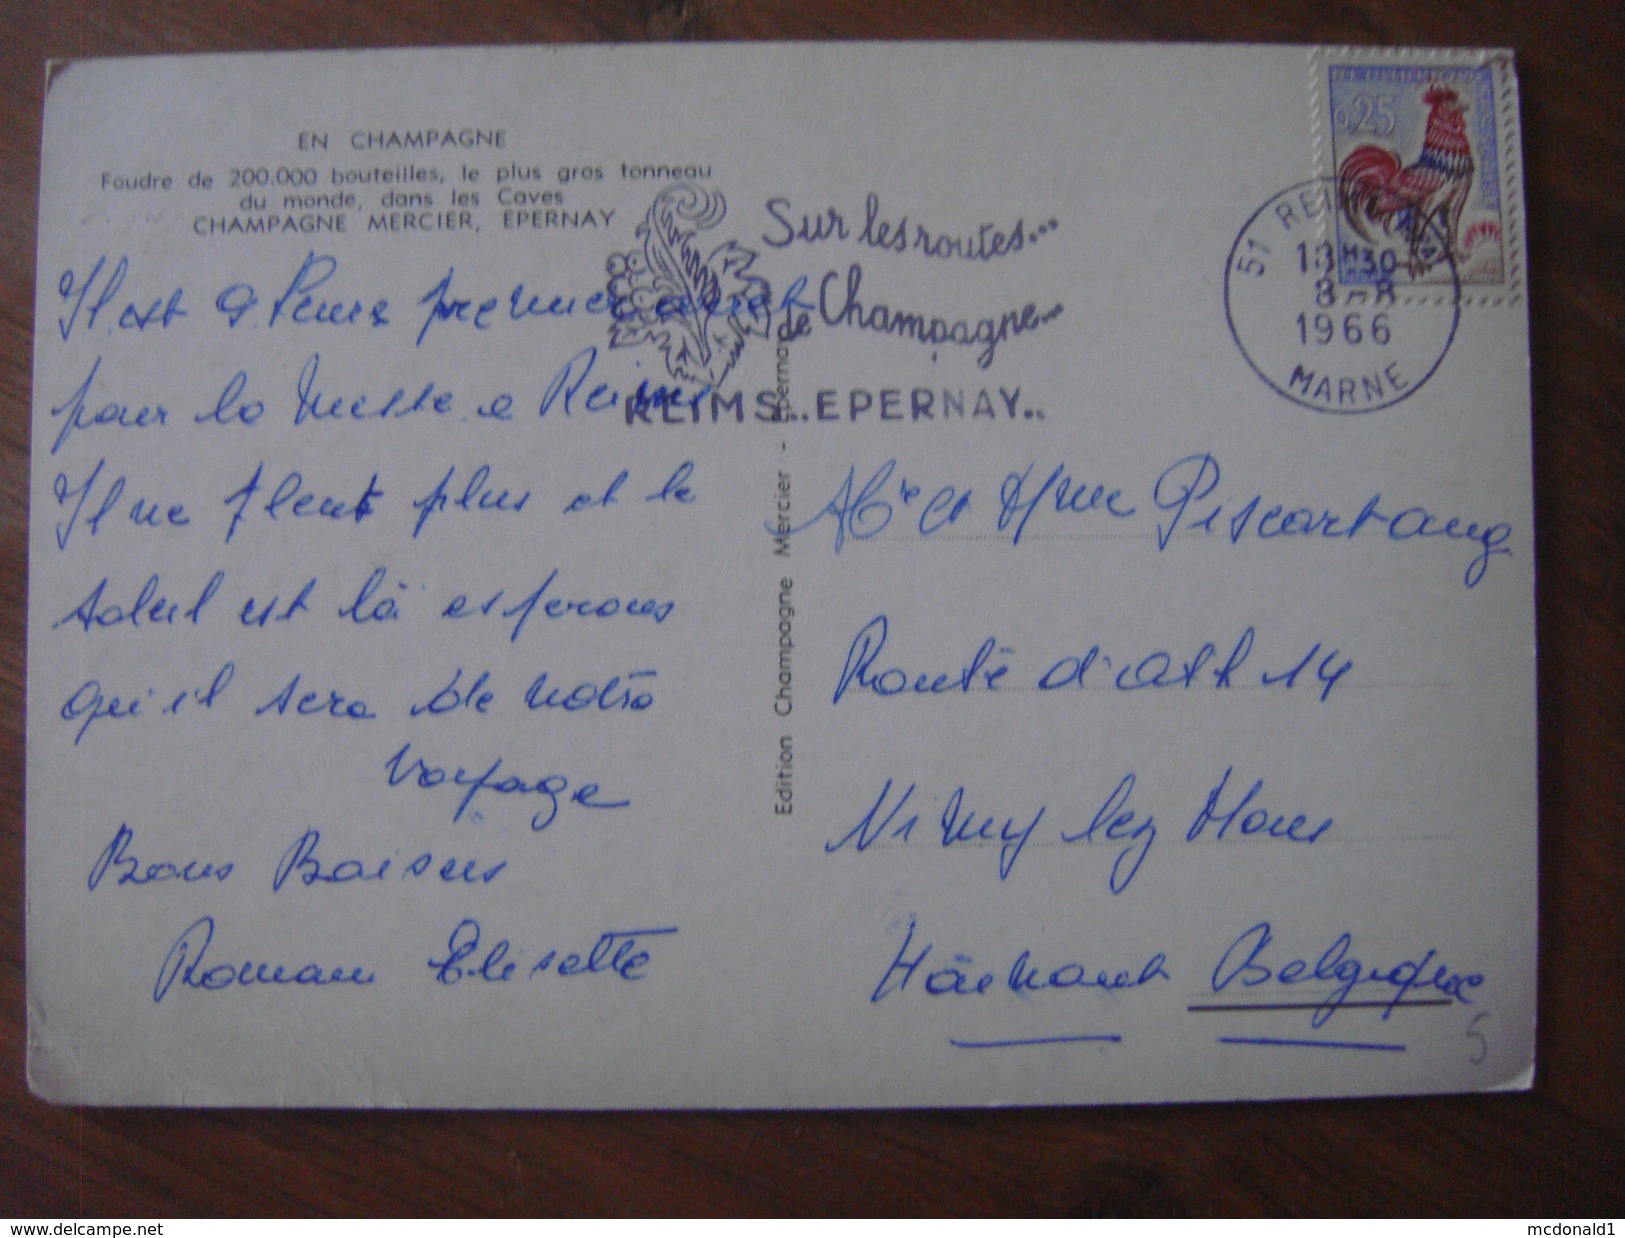 EN CHAMPAGNE
Foudre de 200.000 bouteilles, le plus gros tonneau
du monde, dans les Caves
CHAMPAGNE MERCIER, EPERNAY
Il est 9 heures premier arret
pour la messe a Reims
Il ne pleut plus et le
soleil est là esperons
qu'il sera de notre
voyage
Bons Baisers
Roman Elisette
Edition Champagne Mercier - Epernay
Sur les routes...
de Champagne...
REIMS..EPERNAY..
0,25
51 REIMS
13H30
8-8
1966
MARNE
et Mme
Route d'Ath 14
Nimy lez Mons
Hainaut Belgique
5
www.delcampe.net
mcdonald1